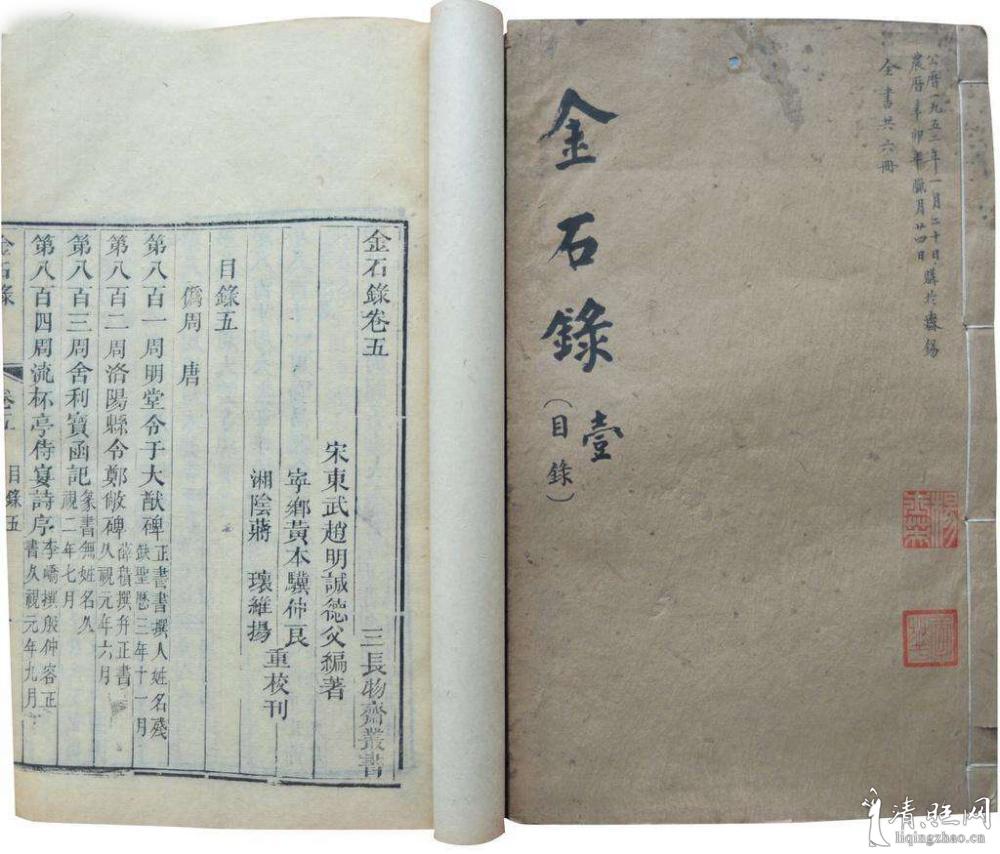 公曆一九五二年一月二十日購於無錫
農曆辛卯年臘月廿四日
全書共六冊
金石錄
壹
（目錄）
金石錄卷五
三長物齋叢書
宋東武趙明誠德父編著
寧鄉黃本驥仲良
湘陰蔣瓌維揚
重校刊
目錄五
僞周 唐
第八百一周明堂令于大猷碑 正書書撰人姓名殘缺聖曆三年十一月
第八百二周洛陽縣令鄭敞碑 薛稷撰并正書久視元年六月
第八百三周舍利寶函記 篆書無姓名久視二年七月
第八百四周流杯亭侍宴詩序 李嶠撰殷仲容正書久視元年九月
金石錄 卷五 目錄五 一
清旺网
liqingzhao.cn